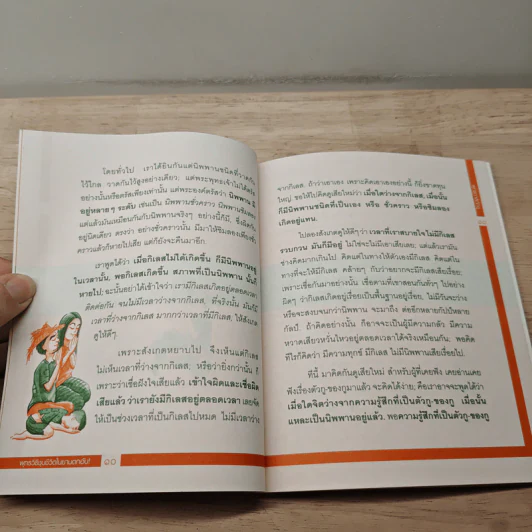 โดยทั่วไป เราได้ยินกันแต่นิพพานชนิดที่วาดกัน
ไว้ไกล วาดกันไว้สูงอย่างเดียว; แต่พระพุทธเจ้าไม่ได้ตรัส
อย่างนั้นหรือตรัสเพียงเท่านั้น แต่พระองค์ตรัสว่า นิพพาน มี
อยู่หลายๆ ระดับ เช่นเป็น นิพพานชั่วคราว นิพพานชิมลอง
แต่แล้วมันเหมือนกันกับนิพพานจริงๆ อย่างนี้ก็มี, ซึ่งผิดกัน
อยู่นิดเดียว ตรงว่า อย่างชั่วคราวนั้น มีมาให้ชิมลองเดี๋ยวชั่ว
คราวแล้วก็หายไปเสีย แต่ก็ยังจะคืนมาอีก.
เราพูดได้ว่า เมื่อกิเลสไม่ได้เกิดขึ้น ก็มีนิพพานอยู่
ในเวลานั้น, พอกิเลสเกิดขึ้น สภาพที่เป็นนิพพาน นั้นก็
หายไป; ฉะนั้นอย่าได้เข้าใจว่า เรามีกิเลสเกิดอยู่ตลอดเวลา
ติดต่อกัน จนไม่มีเวลาว่างจากกิเลส, ที่จริงนั้น มันก็มี
เวลาที่ว่างจากกิเลส มากกว่าเวลาที่มีกิเลส, ให้สังเกต
ดูให้ดีๆ.
เพราะสังเกตหยาบไป จึงเห็นแต่กิเลส
ไม่เห็นเวลาที่ว่างจากกิเลส, หรือว่ายิ่งกว่านั้น ก็
เพราะว่าเชื่อฝังใจเสียแล้ว เข้าใจผิดและเชื่อผิด
เสียแล้ว ว่าเรายังมีกิเลสอยู่ตลอดเวลา เลยจัด
ให้เป็นช่วงเวลาที่เป็นกิเลสไปหมด ไม่มีเวลาว่าง
๑๐
จากกิเลส. ถ้าว่าเอาเอง เพราะคิดเอาเองอย่างนี้ ก็ยิ่งขาดทุน
ใหญ่ ขอให้ไปคิดดูเสียใหม่ว่า เมื่อใดว่างจากกิเลส เมื่อนั้น
ก็มีนิพพานชนิดที่เป็นเอง หรือ ชั่วคราว หรือชิมลอง
อยู่แทน.
ไปลองสังเกตดูให้ดีๆ ว่า เวลาที่เราสบายใจไม่มีกิเลส
รบกวน มันก็มีอยู่ ไม่ใช่จะไม่มีเอาเสียเลย; แต่แล้วเรามัน
ช่างคิดมากเกินไป คิดแต่ในทางให้ตัวเองมีกิเลส คิดแต่ใน
ทางที่จะให้มีกิเลส คล้ายๆ กับว่าอยากจะมีกิเลสเสียเรื่อย;
เพราะเชื่อกันมาอย่างนั้น เชื่อตามที่เขาสอนกันอย่างๆ ไปอย่าง
ผิดๆ ว่ากิเลสเกิดอยู่เรื่อยเป็นพื้นฐานอยู่เรื่อย, ไม่มีวันจะว่าง
หรือจะสงบจนกว่านิพพาน จะมาถึง ต่ออีกหลายกัปป์หลาย
กัลป์. ถ้าคิดอย่างนั้น ก็อาจจะเป็นผู้มีความกลัว มีความ
หวาดเสียวหวั่นไหวอยู่ตลอดเวลาได้จริงเหมือนกัน; พอคิด
ทีไรก็คิดว่า มีความทุกข์ มีกิเลส ไม่มีนิพพานเสียเรื่อยไป.
ทีนี้ มาคิดกันดูเสียใหม่ สำหรับผู้ที่เคยฟัง เคยอ่านเคย
ฟังเรื่องตัวกู-ของกูมาแล้ว จะคิดได้ง่าย; คือเราอาจจะพูดได้ว่า
เมื่อใดจิตว่างจากความรู้สึกที่เป็นตัวกู-ของกู เมื่อนั้น
แหละเป็นนิพพานอยู่แล้ว. พอความรู้สึกที่เป็นตัวกู-ของกู